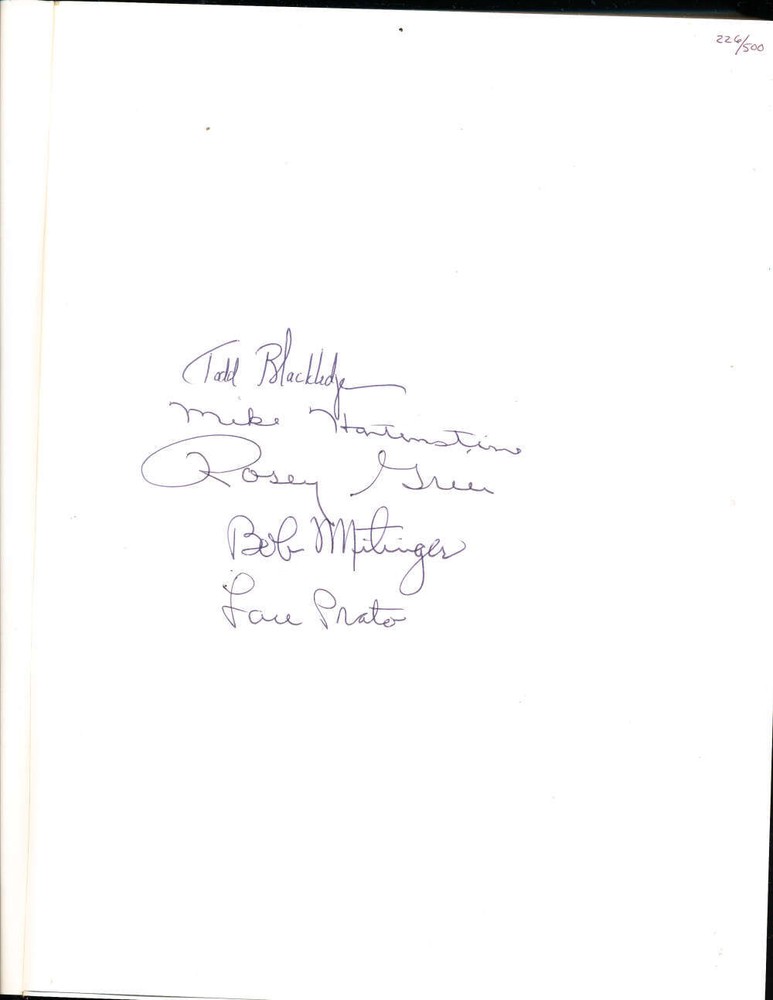 226/500
Todd Blackledge
Mike Hartenstine
Rosey Grier
Bob Mitinger
Lou Prato